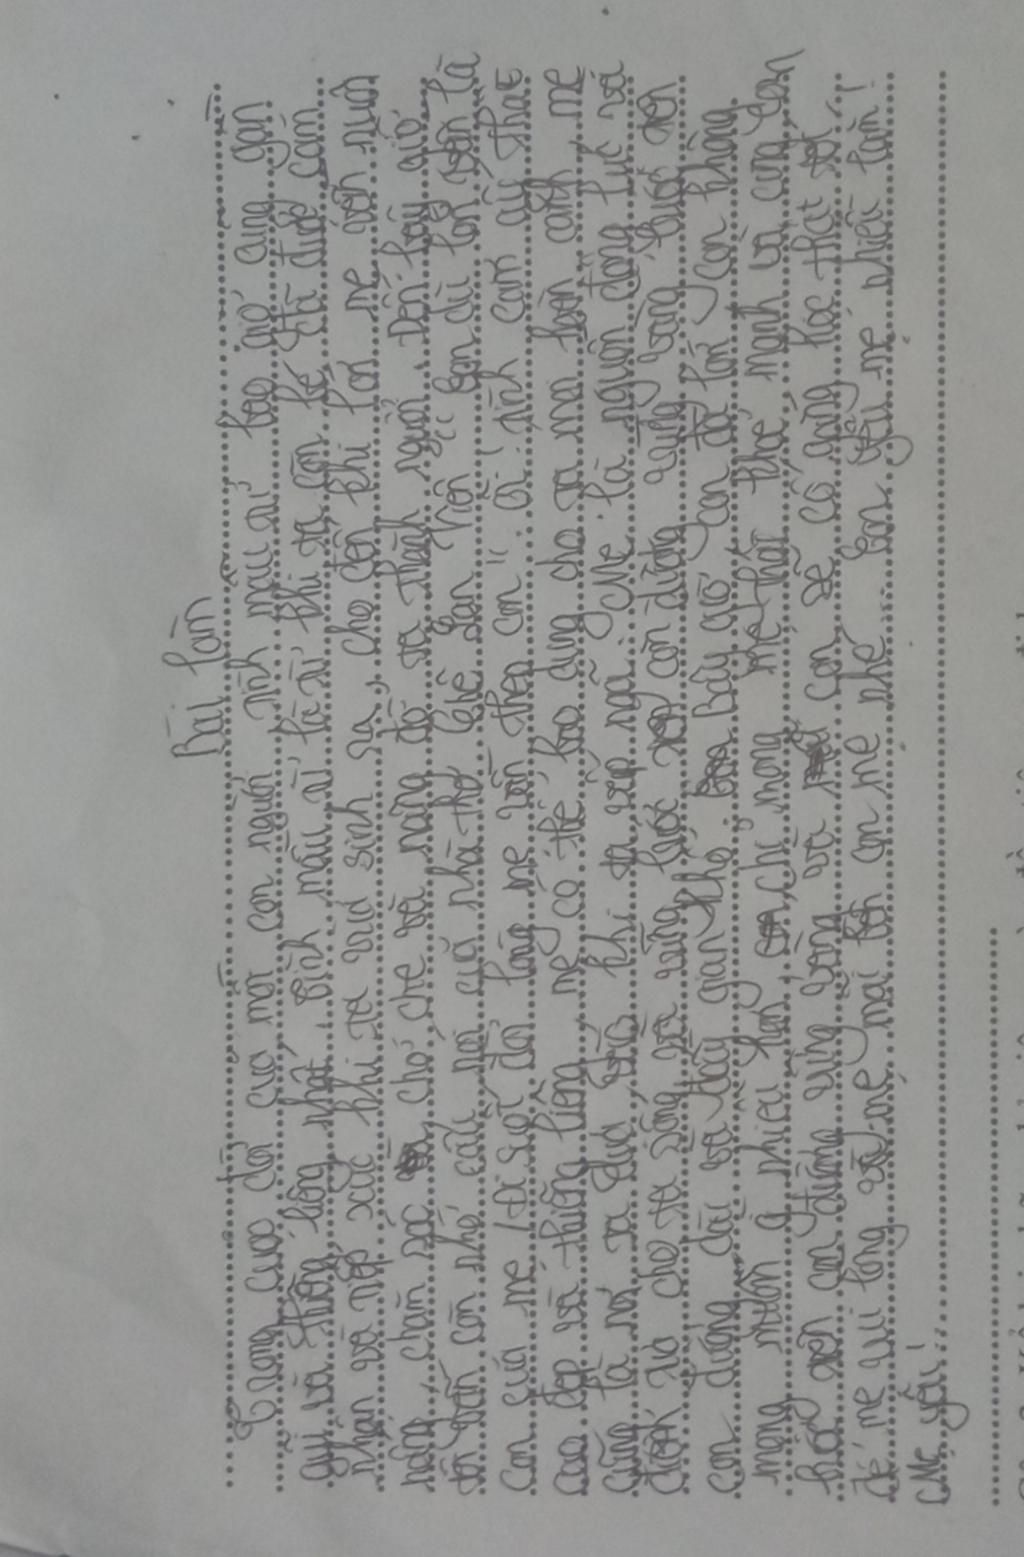 Bài làm
Trong cuộc đời của mỗi con người tình mẫu tử bao giờ cũng gần
gũi và thiêng liêng nhất. Tình mẫu tử là từ khi ta còn bé đã được cảm
nhận và tiếp xúc khi ta vừa sinh ra, cho đến khi lớn mẹ vẫn nuôi
nấng, chăm sóc, chở che và nâng đỡ ta thành người. Đến bây giờ
tôi vẫn còn nhớ câu nói của nhà thơ Chế Lan Viên "Con dù lớn vẫn là
con của mẹ / Đi suốt đời lòng mẹ vẫn theo con". Ôi! tình cảm ấy thật
cao đẹp và thiêng liêng, mẹ có thể bao dung cho ta mọi hoàn cảnh mẹ
cũng là nơi ta dựa vào khi ta vấp ngã. Mẹ là nguồn động lực và
cho ta sống và vững bước con đường vững vàng bước trên
con đường dài và đầy gian khổ. Bây giờ con đã lớn, con không
mong muốn gì nhiều hơn, chỉ mong mẹ thật khoẻ mạnh và cùng con
bước trên con đường vững vàng và con sẽ cố gắng học thật tốt
để mẹ vui lòng và mẹ mãi bên con mẹ nhé. Con yêu mẹ nhiều lắm!
Mẹ yêu!